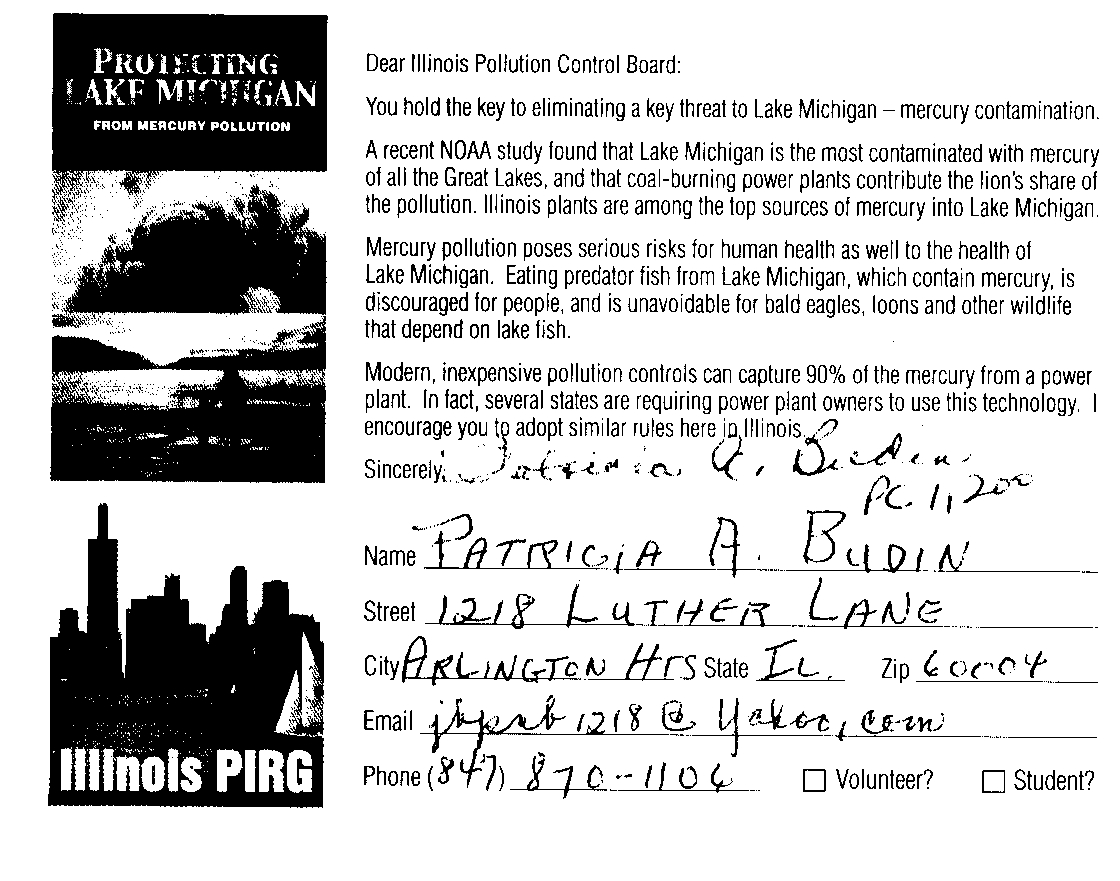 PROTECTING
LAKE MICHIGAN
FROM MERCURY POLLUTION
Illinois PIRG
Dear Illinois Pollution Control Board:
You hold the key to eliminating a key threat to Lake Michigan – mercury contamination.
A recent NOAA study found that Lake Michigan is the most contaminated with mercury
of all the Great Lakes, and that coal-burning power plants contribute the lion's share of
the pollution. Illinois plants are among the top sources of mercury into Lake Michigan.
Mercury pollution poses serious risks for human health as well to the health of
Lake Michigan. Eating predator fish from Lake Michigan, which contain mercury, is
discouraged for people, and is unavoidable for bald eagles, loons and other wildlife
that depend on lake fish.
Modern, inexpensive pollution controls can capture 90% of the mercury from a power
plant. In fact, several states are requiring power plant owners to use this technology. I
encourage you to adopt similar rules here in Illinois.
Sincerely, Patricia A. Budin
PC 1,200
Name PATRICIA A. BUDIN
Street 1218 LUTHER LANE
City ARLINGTON HTS State IL. Zip 60004
Email @ yahoo.com
Phone (847) 870-1106
Volunteer? Student?